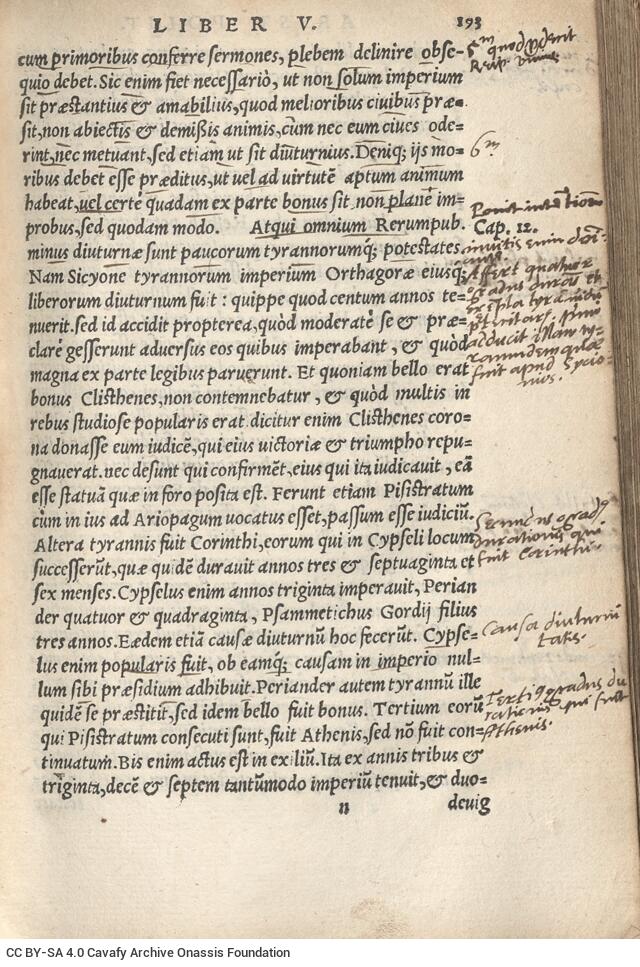 LIBER V. 193
cum primoribus conferre sermones, plebem delinire obse-
quio debet. Sic enim fiet necessariò, ut non solum imperium
sit præstantius & amabilius, quod melioribus ciuibus præ-
sit, non abiectis & demißis animis, cùm nec eum ciues ode-
rint, nec metuant, sed etiam ut sit diuturnius. Deniq; ijs mo-
ribus debet esse præditus, ut uel ad uirtutē aptum animum
habeat, uel certè quadam ex parte bonus sit non planè im-
probus, sed quodam modo. Atqui omnium Rerumpub.
minus diuturnæ sunt paucorum tyrannorumq; potestates
Nam Sicyone tyrannorum imperium Orthagoræ eiusq;
liberorum diuturnum fuit: quippe quod centum annos te-
nuerit. sed id accidit propterea, quòd moderatè se & præ-
clarè gesserunt aduersus eos quibus imperabant, & quòd
magna ex parte legibus paruerunt. Et quoniam bello erat
bonus Clisthenes, non contemnebatur, & quòd multis in
rebus studiose popularis erat. dicitur enim Clisthenes coro-
na donasse eum iudicē, qui eius uictoriæ & triumpho repu-
gnauerat. nec desunt qui confirmēt, eius qui ita iudicauit, eā
esse statuā quæ in foro posita est. Ferunt etiam Pisistratum
cùm in ius ad Ariopagum uocatus esset, passum esse iudiciū.
Altera tyrannis fuit Corinthi, eorum qui in Cypseli locum
successerūt, quæ quidē durauit annos tres & septuaginta et
sex menses. Cypselus enim annos triginta imperauit, Perian
der quatuor & quadraginta, Psammetichus Gordij filius
tres annos. Eædem etiā causæ diuturnū hoc fecerūt. Cypse-
lus enim popularis fuit, ob eamq; causam in imperio nul-
lum sibi præsidium adhibuit. Periander autem tyrannū ille
quidē se præstitit, sed idem bello fuit bonus. Tertium eorū
qui Pisistratum consecuti sunt, fuit Athenis, sed nō fuit con-
tinuatum. Bis enim actus est in exiliū. Ita ex annis tribus &
triginta, decē & septem tantūmodo imperiū tenuit, & duo-
n deuig
6m
Cap. 12.
Affert quatuor
adducit illam ty-
rannidem quæ
fuit apud Sycio-
nios.
fuit Corinthi.
Causa diuturni
tatis.
Tertius gradus du
rationis qui fuit
Athenis.
CC BY-SA 4.0 Cavafy Archive Onassis Foundation